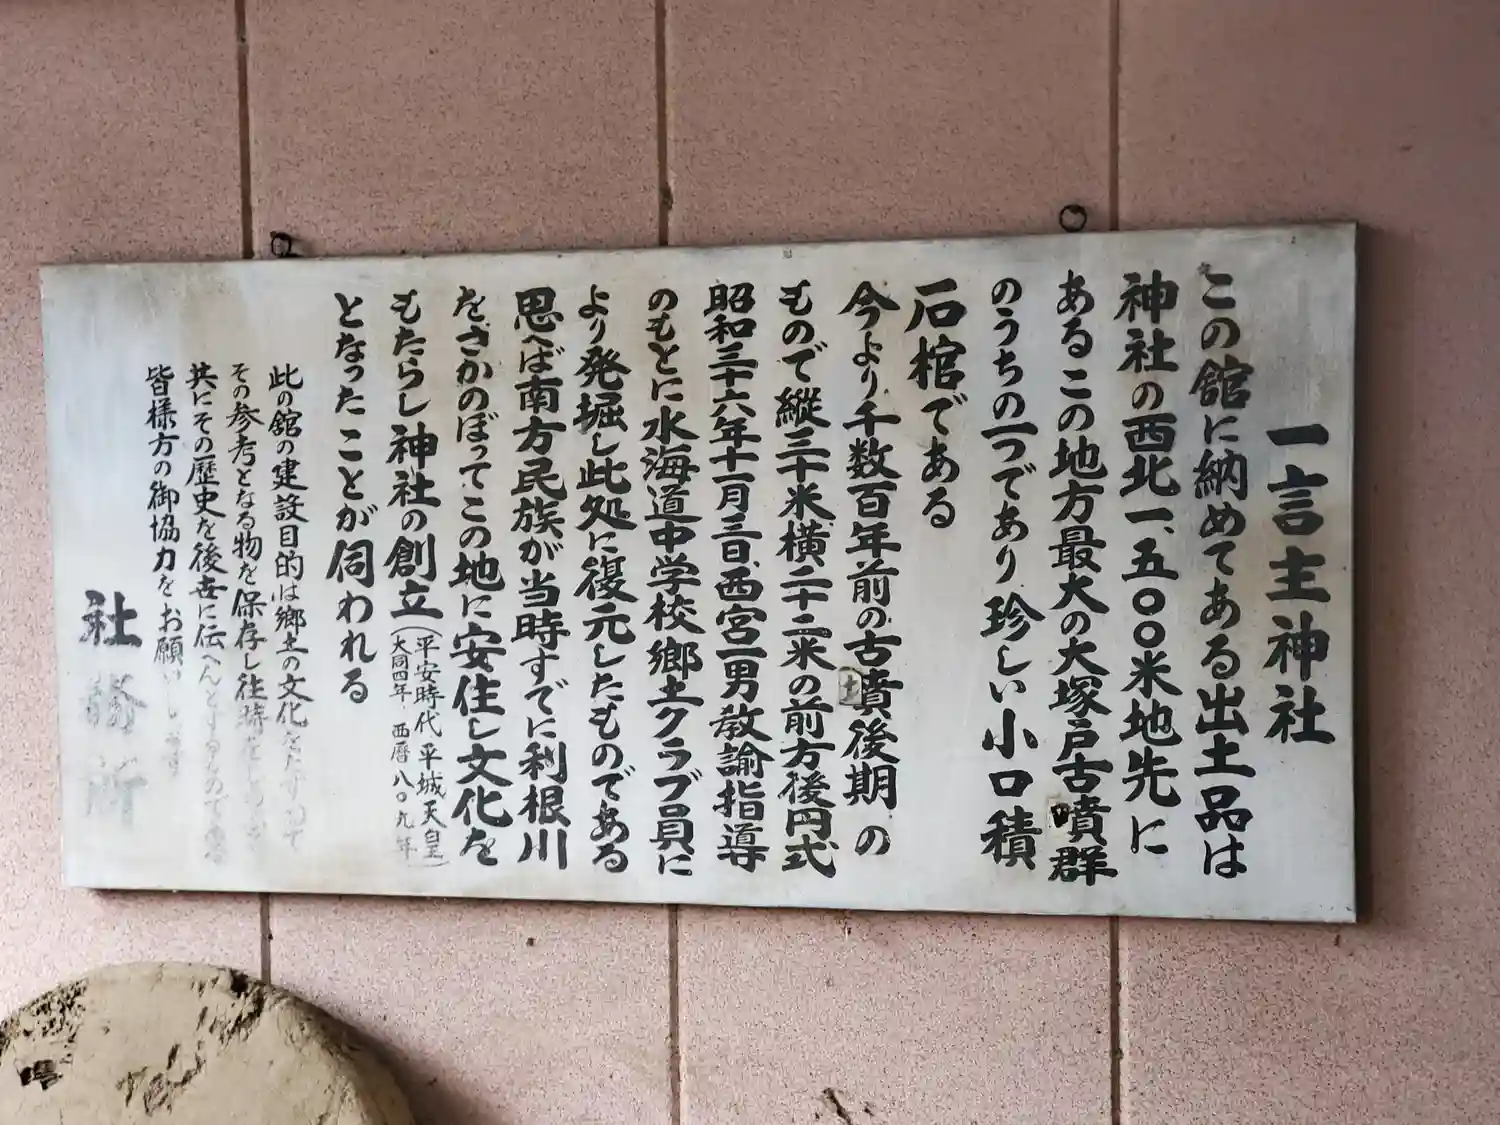 一言主神社
この館に納めてある出土品は
神社の西北一、五〇〇米地先に
あるこの地方最大の大塚戸古墳群
のうちの一つであり珍しい小口積
石棺である
今より千数百年前の古墳後期の
もので縦三十米横二十二米の前方後円式
昭和三十六年十一月三日西宮一男教諭指導
のもとに水海道中学校郷土クラブ員に
より発堀し此処に復元したものである
思へば南方民族が当時すでに利根川
をさかのぼってこの地に安住し文化を
もたらし神社の創立(平安時代平城天皇)
大同四年 西暦八〇九年
となったことが伺われる
此の館の建設目的は郷土の文化を
その参考となる物を保存し往時を
共にその歴史を後世に伝へんとするもので
皆様方の御協力をお願い
社務所